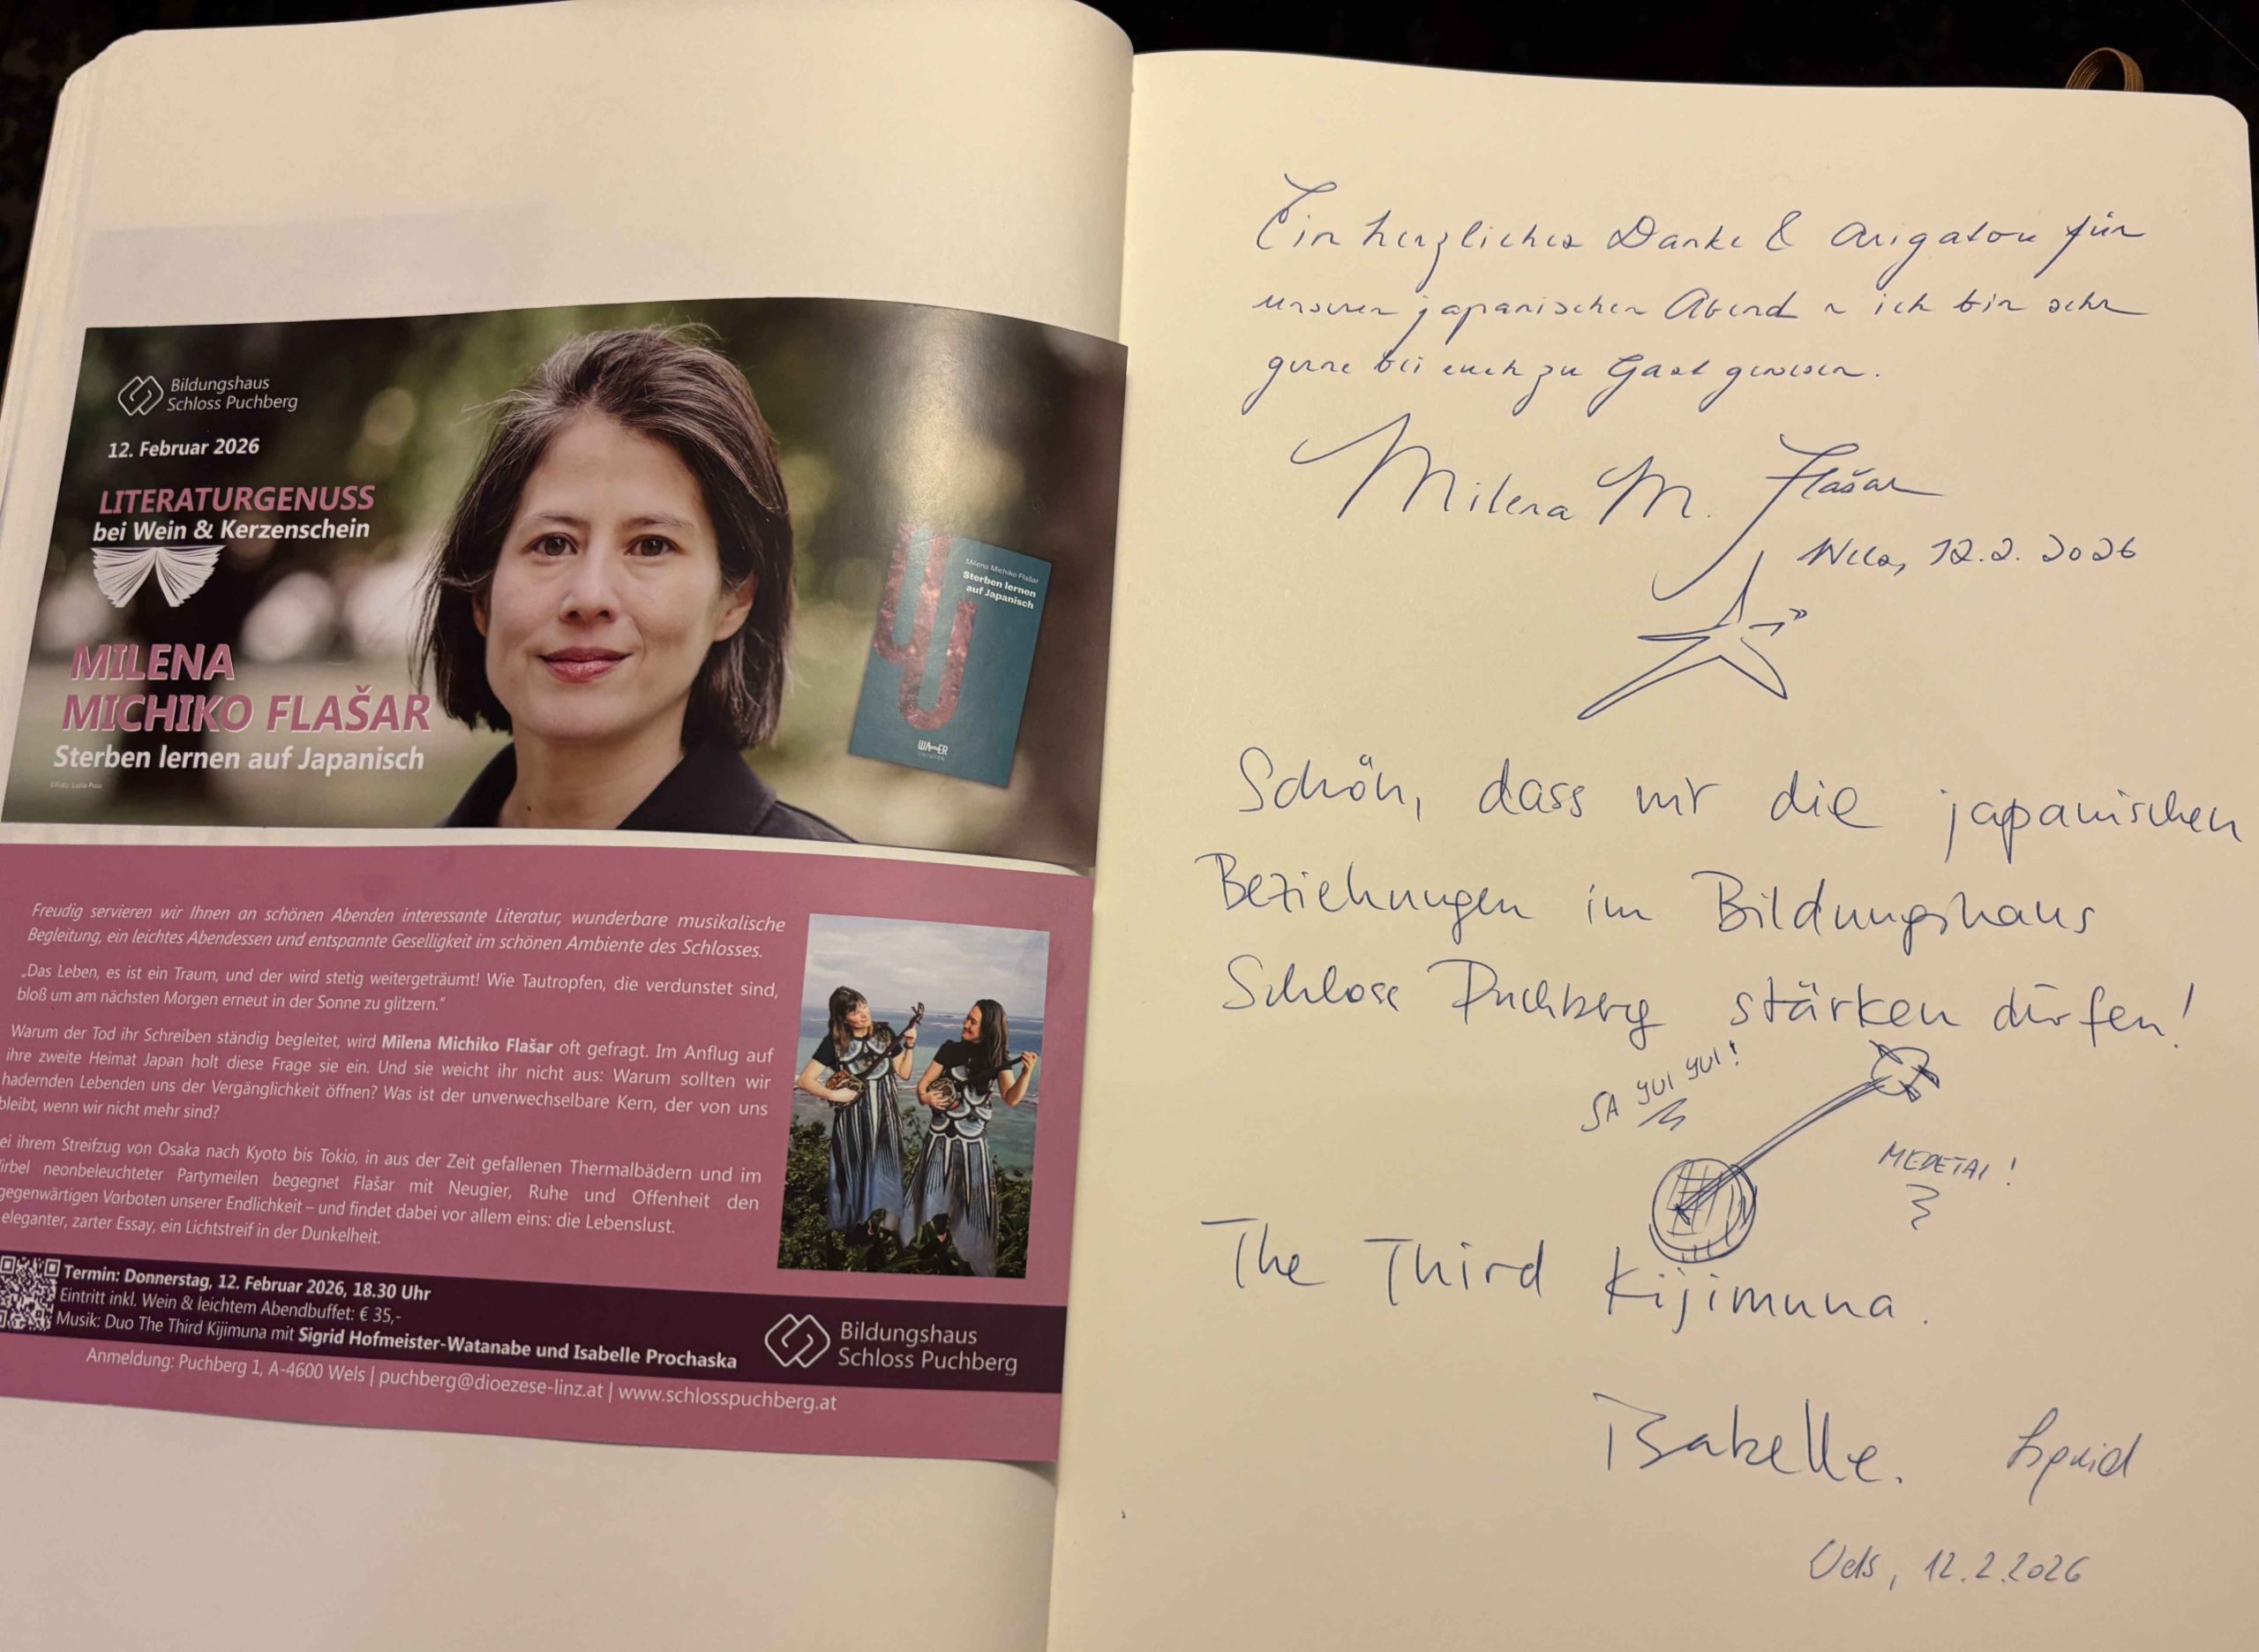 Bildungshaus
Schloss Puchberg
12. Februar 2026
LITERATURGENUSS
bei Wein & Kerzenschein
MILENA
MICHIKO FLAŠAR
Sterben lernen auf Japanisch
Milena Michiko Flašar
Sterben lernen
auf Japanisch
Freudig servieren wir Ihnen an schönen Abenden interessante Literatur, wunderbare musikalische
Begleitung, ein leichtes Abendessen und entspannte Geselligkeit im schönen Ambiente des Schlosses.
„Das Leben, es ist ein Traum, und der wird stetig weitergeträumt! Wie Tautropfen, die verdunstet sind,
bloß um am nächsten Morgen erneut in der Sonne zu glitzern.“
Warum der Tod ihr Schreiben ständig begleitet, wird Milena Michiko Flašar oft gefragt. Im Anflug auf
ihre zweite Heimat Japan holt diese Frage sie ein. Und sie weicht ihr nicht aus: Warum sollten wir
hadernden Lebenden uns der Vergänglichkeit öffnen? Was ist der unverwechselbare Kern, der von uns
bleibt, wenn wir nicht mehr sind?
ei ihrem Streifzug von Osaka nach Kyoto bis Tokio, in aus der Zeit gefallenen Thermalbädern und im
irbel neonbeleuchteter Partymeilen begegnet Flašar mit Neugier, Ruhe und Offenheit den
gegenwärtigen Vorboten unserer Endlichkeit – und findet dabei vor allem eins: die Lebenslust.
eleganter, zarter Essay, ein Lichtstreif in der Dunkelheit.
Termin: Donnerstag, 12. Februar 2026, 18.30 Uhr
Eintritt inkl. Wein & leichtem Abendbuffet: € 35,-
Musik: Duo The Third Kijimuna mit Sigrid Hofmeister-Watanabe und Isabelle Prochaska
Bildungshaus
Schloss Puchberg
Anmeldung: Puchberg 1, A-4600 Wels | puchberg@dioezese-linz.at | www.schlosspuchberg.at
Ein herzliches Danke & Arigatou für
unseren japanischen Abend ~ ich bin sehr
gerne bei euch zu Gast gewesen.
Milena M. Flašar
Wels, 12.2. 2026
Schön, dass wir die japanischen
Beziehungen im Bildungshaus
Schloss Puchberg stärken dürfen!
SA YUI YUI!
MEDETAI!
The Third Kijimuna.
Isabelle. Sigrid
Wels, 12.2.2026